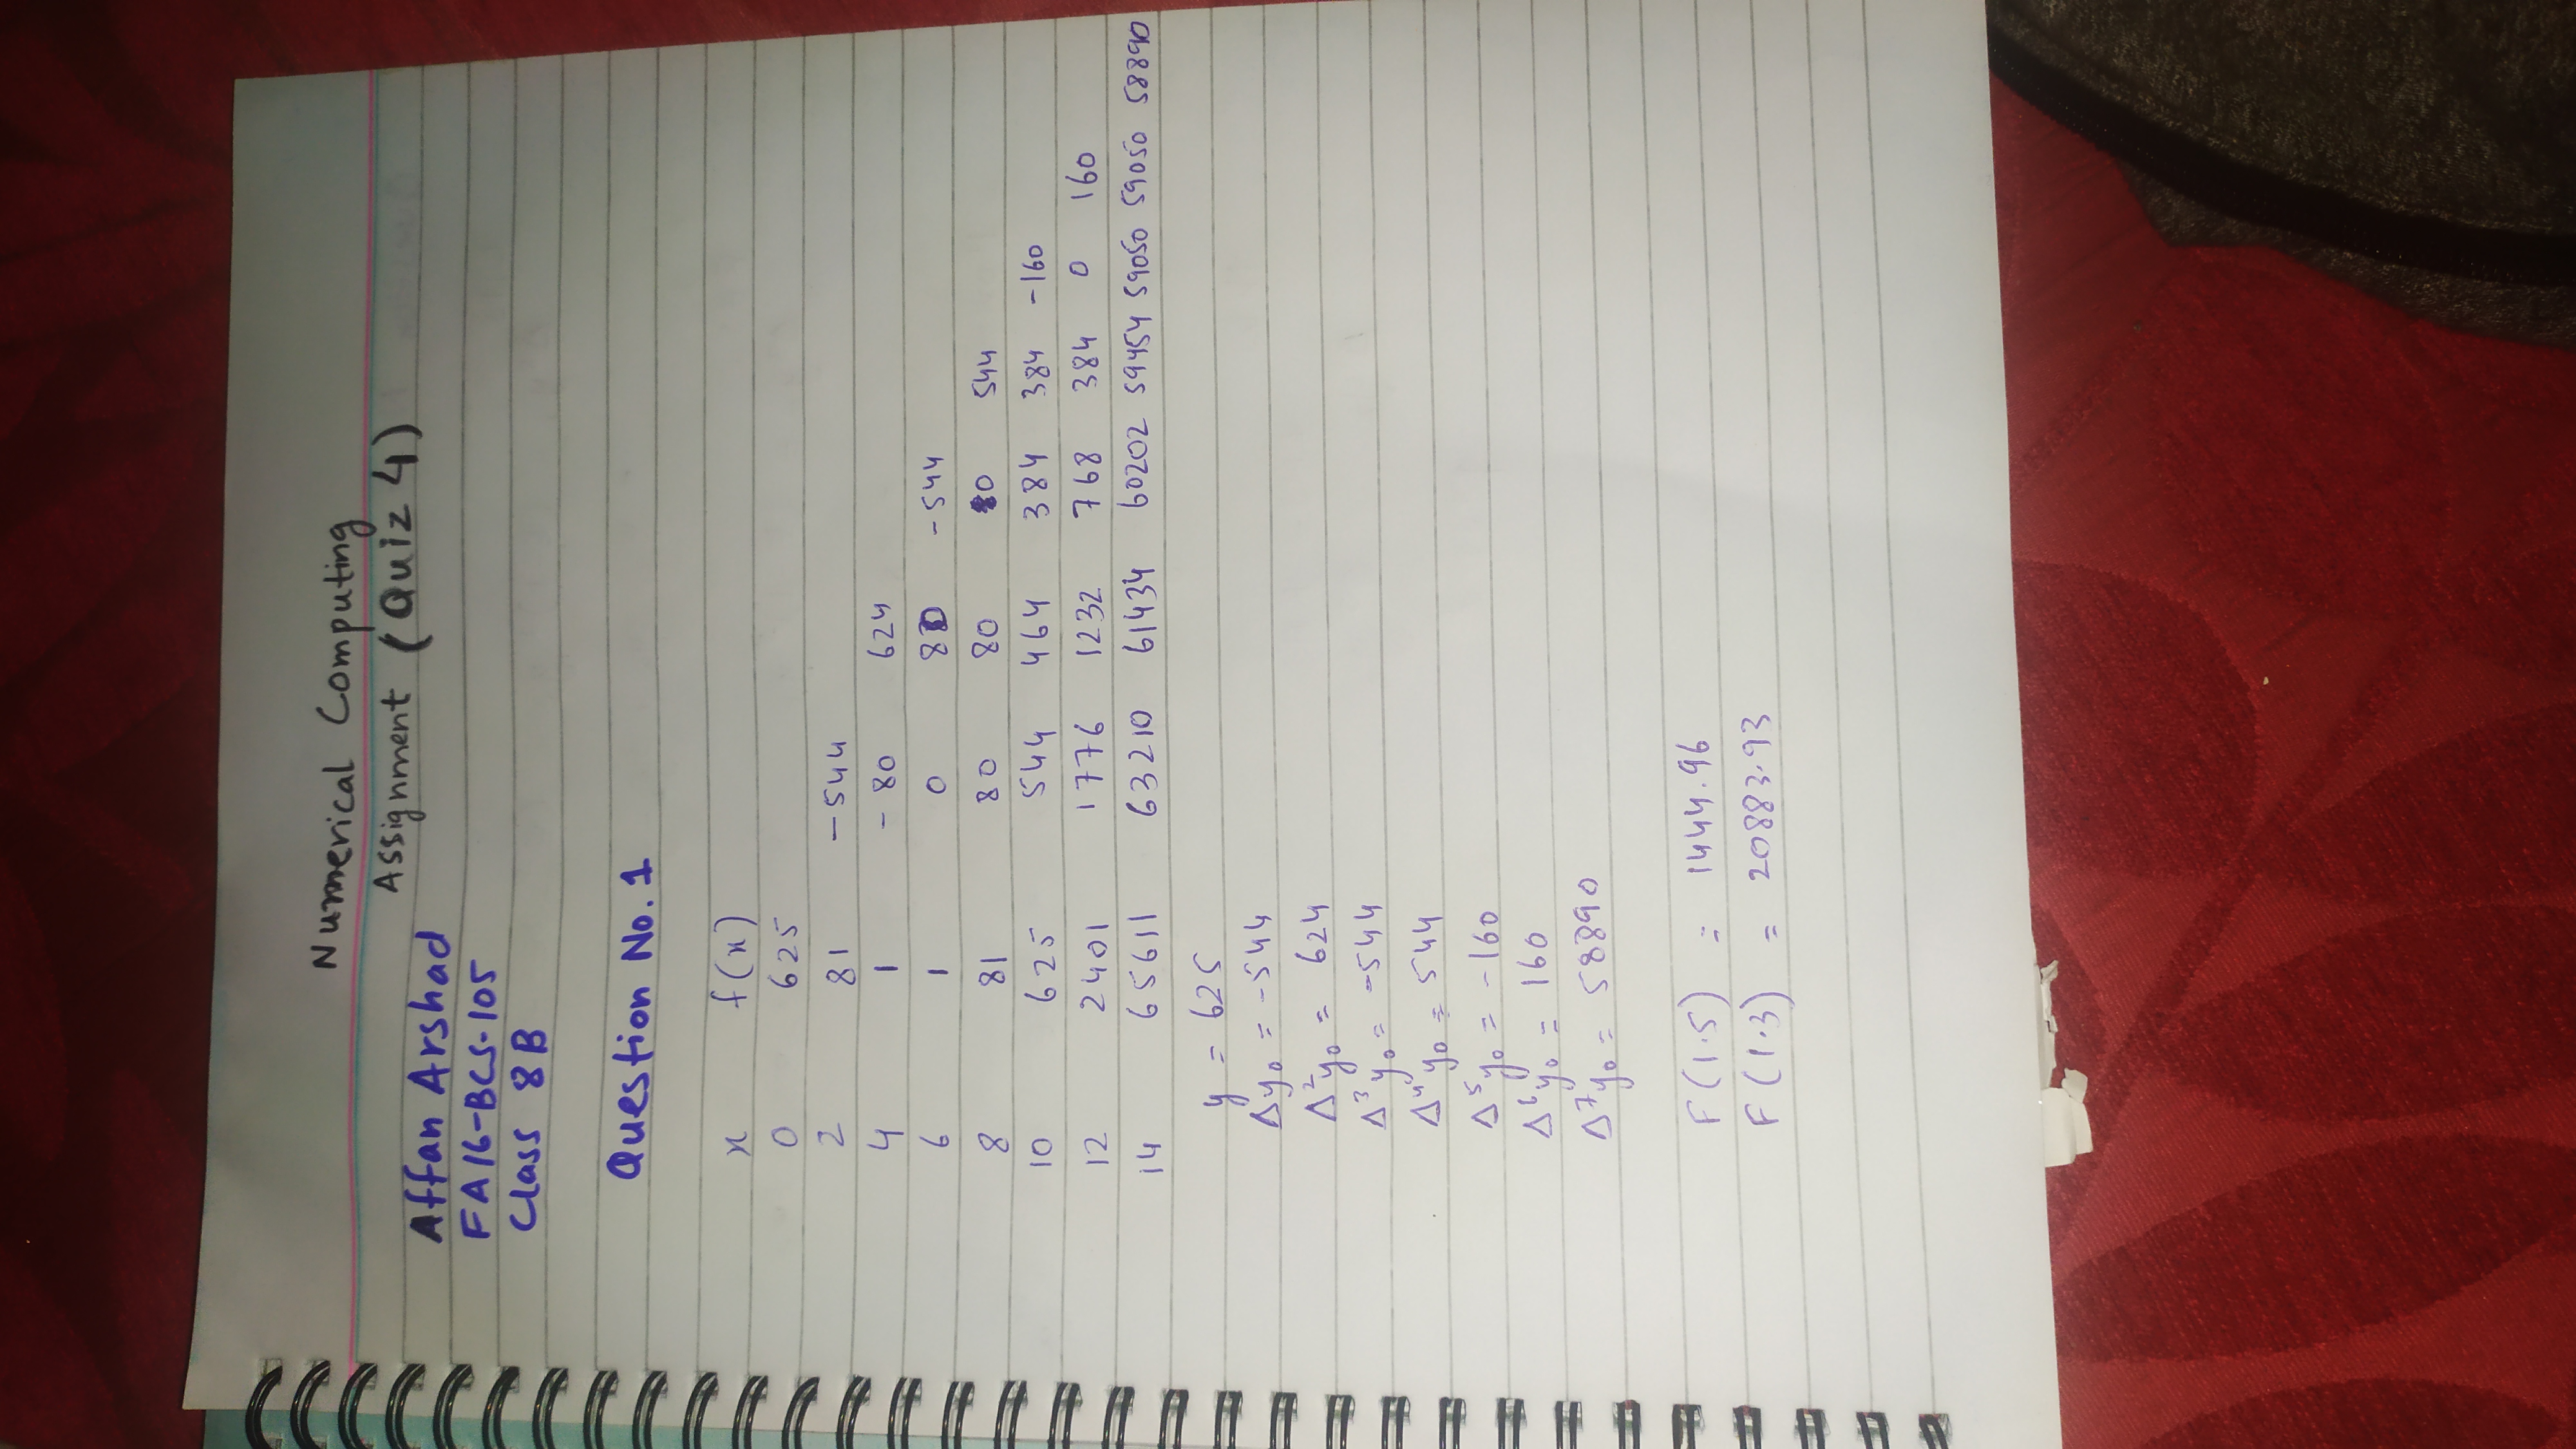 Numerical Computing
Assignment (Quiz 4)
Affan Arshad
FA16-BCS-105
Class 8B
Question No. 1
x f(x)
0 625
2 81 -544
4 1 -80 624
6 1 0 80 -544
8 81 80 80 0 544
10 625 544 464 384 384 -160
12 2401 1776 1232 768 384 0 160
14 65611 63210 61434 60202 59454 59050 59050 58890
y = 625
Δy₀ = -544
Δ²y₀ = 624
Δ³y₀ = -544
Δ⁴y₀ = 544
Δ⁵y₀ = -160
Δ⁶y₀ = 160
Δ⁷y₀ = 58890
F(1.5) = 1444.96
F(1.3) = 20883.93